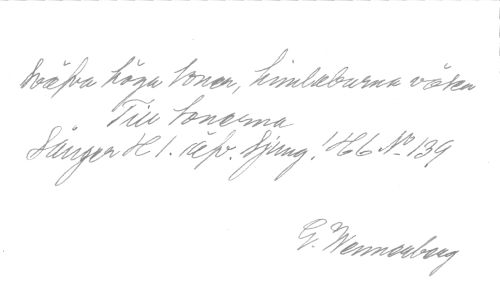 Sväfva höga toner, himlabarna väcka
Till tonerna
Sånger H 1. äfv. Sjung! H6 No 139
G. Wennerberg